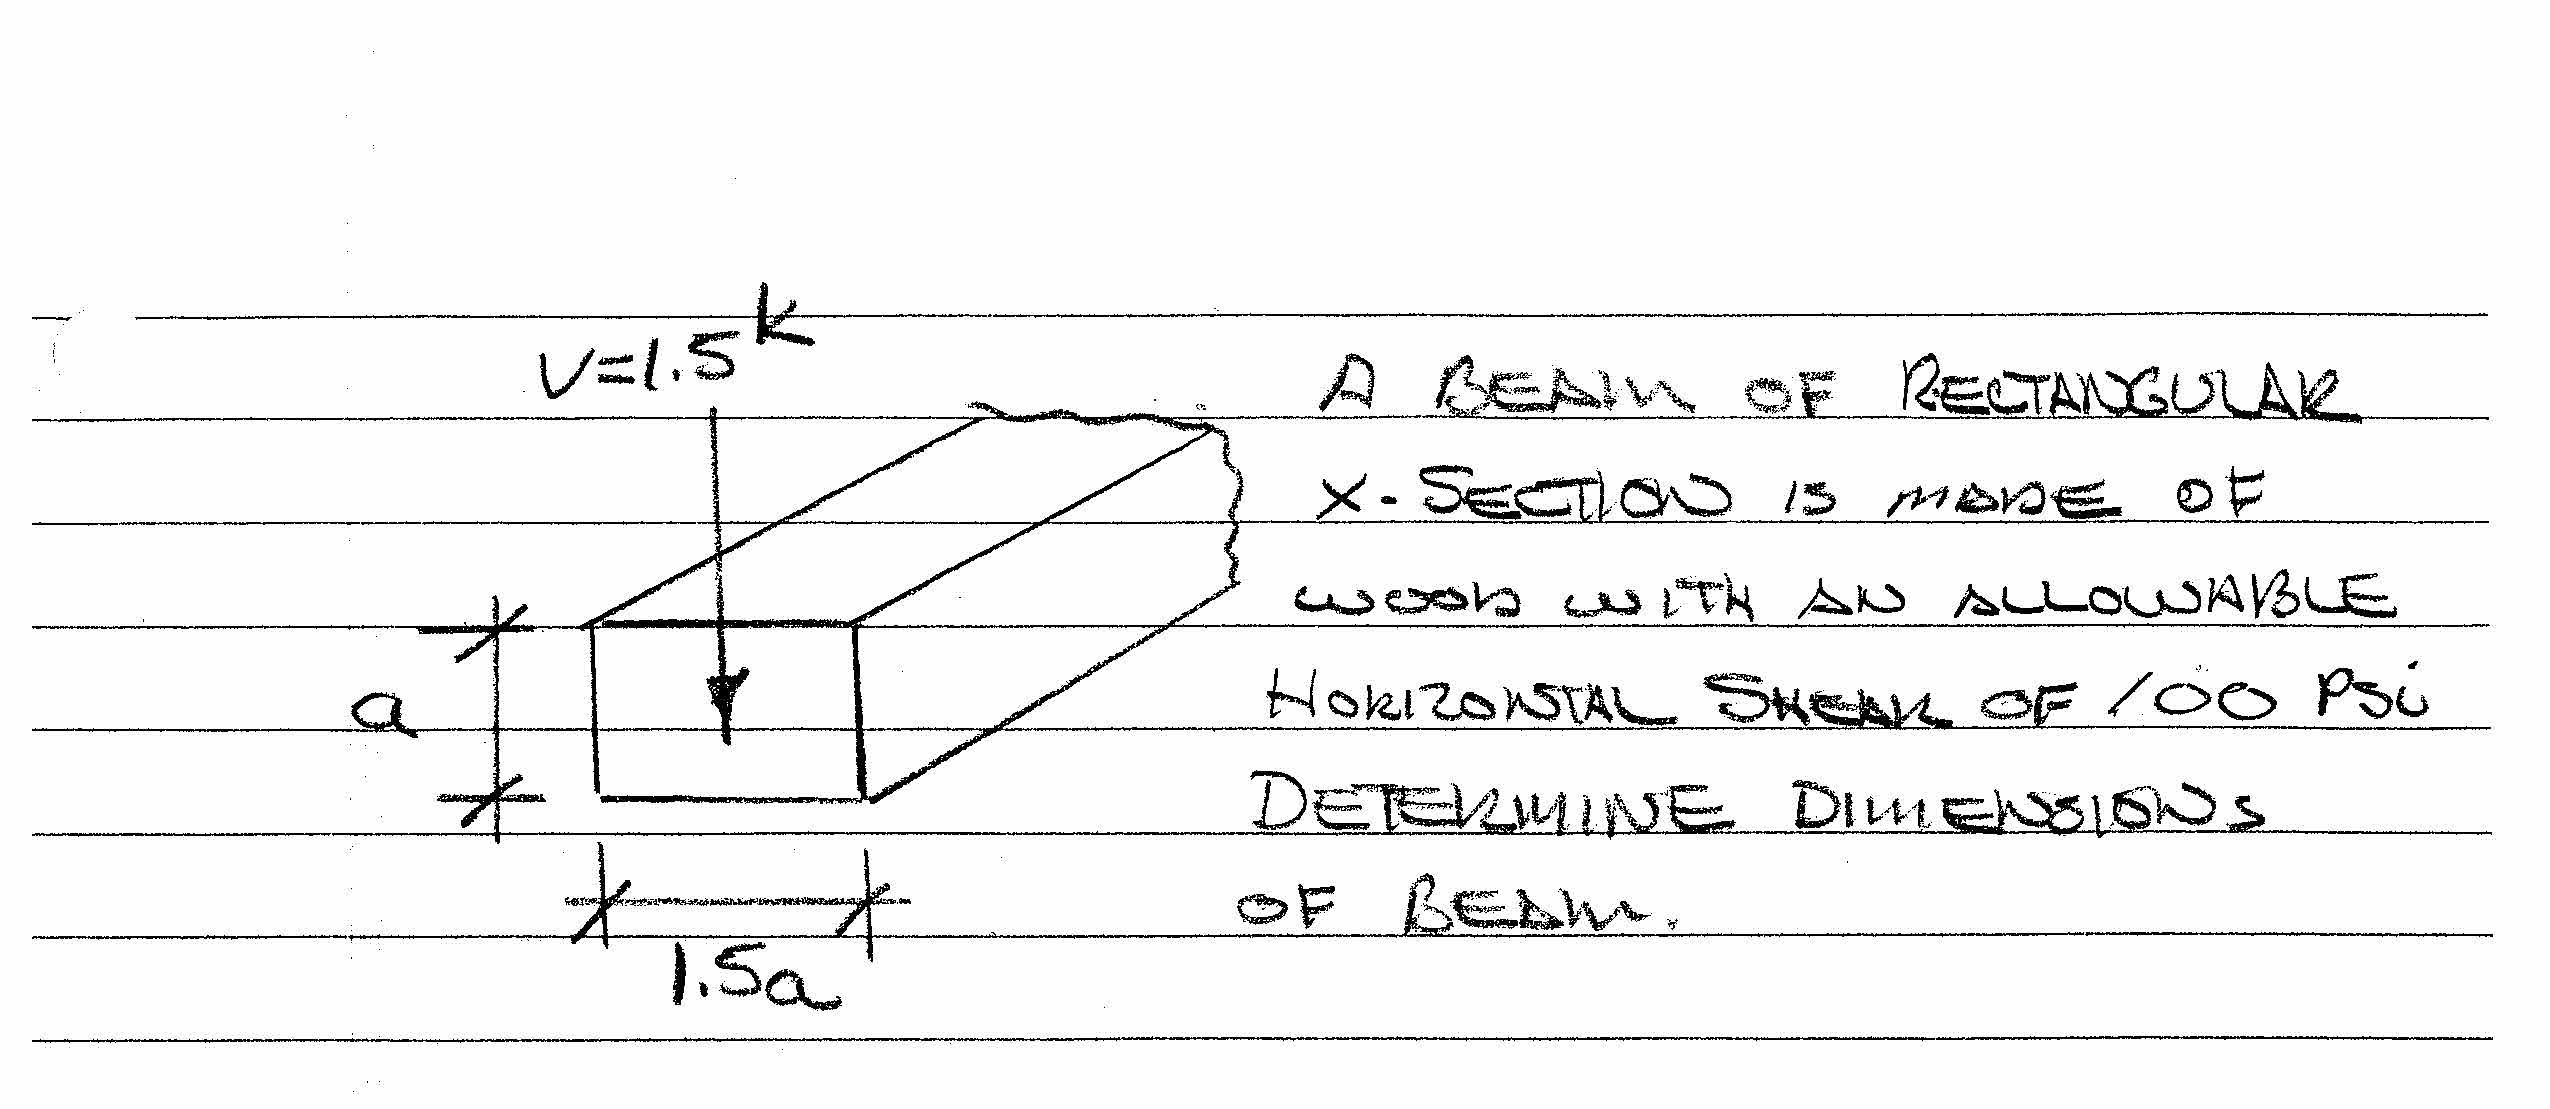 V=1.5k
A BEAM OF RECTANGULAR
X-SECTION IS MADE OF
WOOD WITH AN ALLOWABLE
HORIZONTAL SHEAR OF 100 PSi
DETERMINE DIMENSIONS
OF BEAM.
a
1.5a